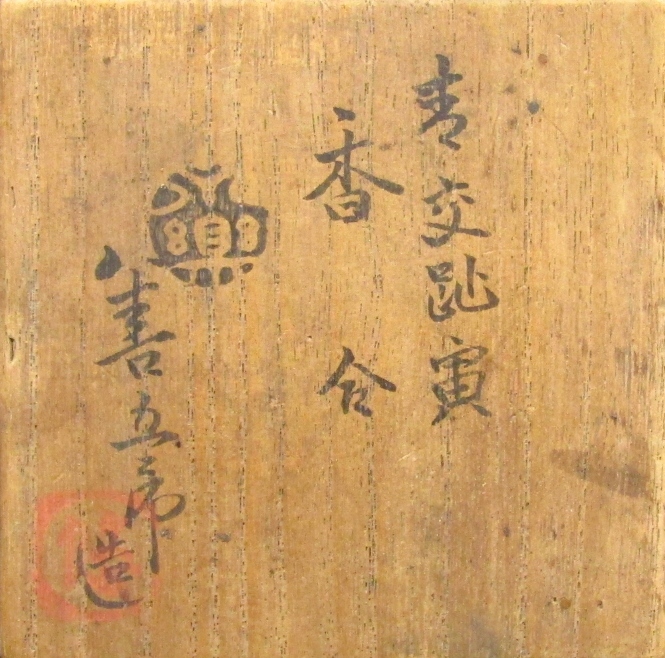 青交趾寅
香合
善五郎造